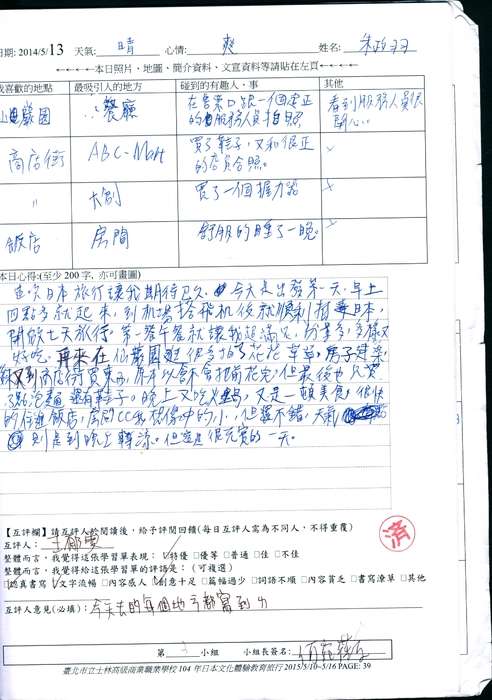 日期: 2014/5/13 天氣: 晴 心情: 爽 姓名:
←←←←本日照片、地圖、簡介資料、文宣資料等請貼在左頁←←←←
我喜歡的地點 最吸引人的地方 碰到的有趣人、事 其他
園 餐廳 在 口跟一個 正的服務人員拍照 看到服務人員很開心。
商店街 ABC-Mart 買了鞋子,又和很正的店員合照。 ×
〃 大創 買了一個握力器 ×
飯店 房間 舒服的睡了一晚。 ×
本日心得:(至少 200 字, 亦可畫圖)
這次日本旅行讓我期待已久,今天是出發第一天,早上
四點多就起來,到機場搭飛機後就順利抵達日本,
開啟七天旅行。第一餐午餐就讓我超滿足,份量多,多樣又
好吃。再來在 園 很多拍了花花草草,房子建築
又到商店街買東西,原本以為不會把錢花完,但最後也只買
還有鞋子。晚上又吃 ,又是一頓美食,很快
的住進飯店,房間 比想像中的小,但還不錯,天氣
則是到晚上轉涼。但這是很充實的一天。
【互評欄】請互評人於閱讀後,給予評閱回饋(每日互評人需為不同人,不得重覆)
互評人: 王郁
整體而言,我覺得這張學習單表現:□特優 □優等 □普通 □佳 □不佳
整體而言,我覺得這張學習單的評語是:(可複選)
□認真書寫 □文字流暢 □內容感人 □創意十足 □篇幅過少 □詞語不順 □內容貧乏 □書寫潦草 □其他
互評人意見(必填): 今天去的每個地方都寫到
済
第 3 小組 小組長簽名:
臺北市立士林高級商業職業學校 104 年日本文化體驗教育旅行 2015/5/10~5/16 PAGE: 39